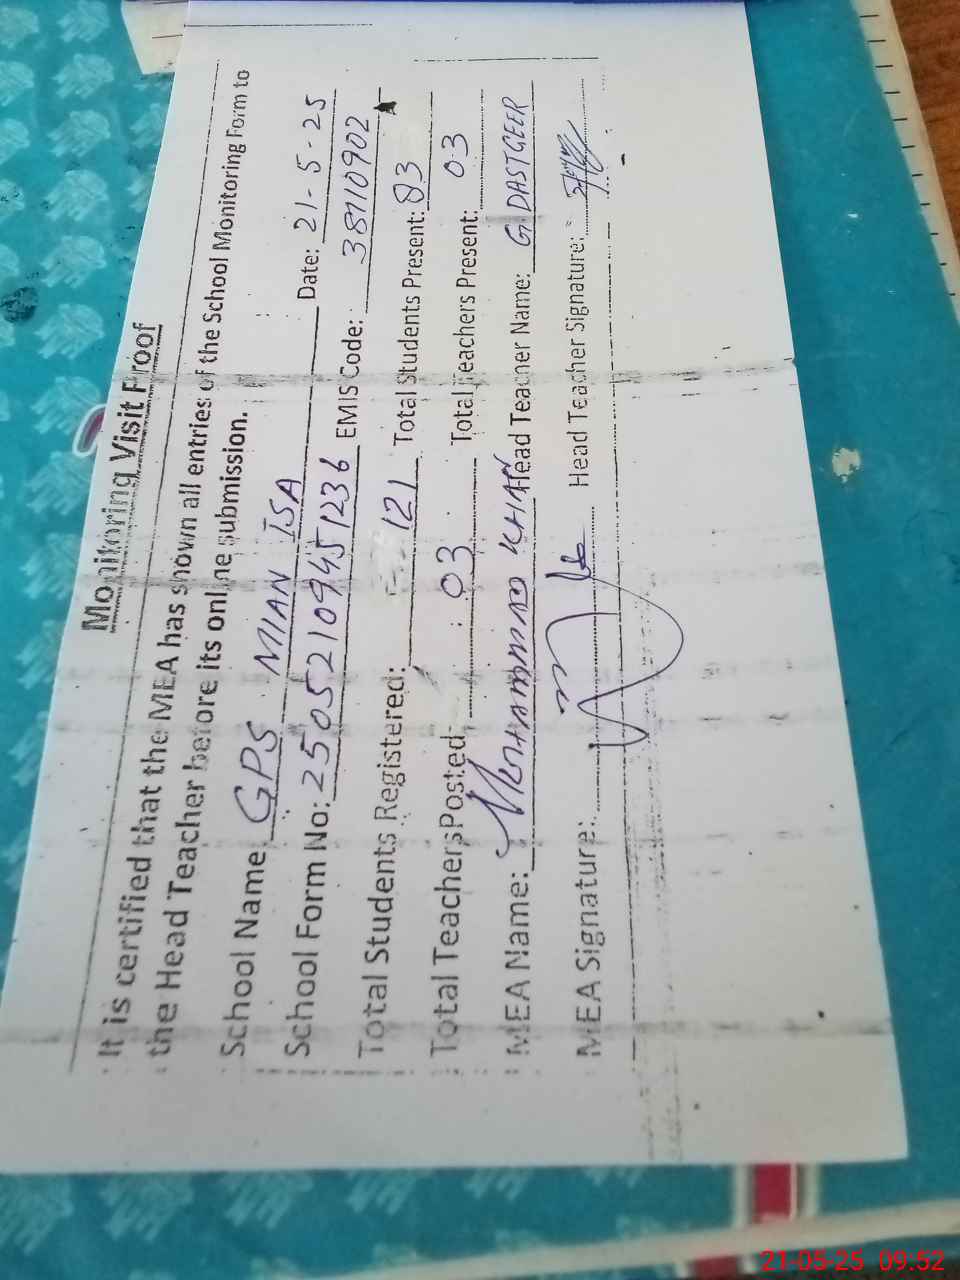 Monitoring Visit Proof
It is certified that the MEA has shown all entries of the School Monitoring Form to
the Head Teacher before its online submission.
School Name GPS MIAN ISA Date: 21-5-25
School Form No: 25052109451236 EMIS Code: 38710902
Total Students Registered: 121 Total Students Present: 83
Total Teachers Posted: 03 Total Teachers Present: 03
MEA Name: MUHAMMAD KHAN Head Teacher Name: G. DASTGEER
MEA Signature: Head Teacher Signature:
21-05-25 09:52